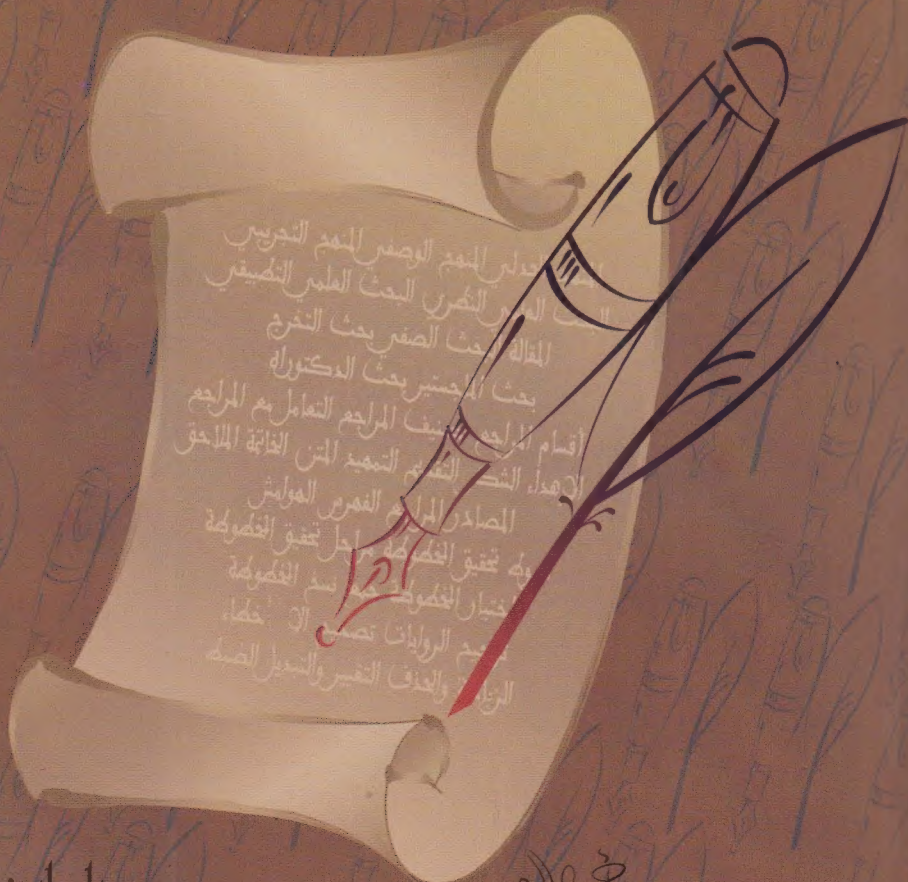 الجدلي المنهج الوصفي المنهج التجريبي
البحث العلمي النظري البحث العلمي التطبيقي
المقالة البحث الصفي بحث التخرج
بحث الماجستير بحث الدكتوراه
أقسام المراجع تصنيف المراجع التعامل مع المراجع
الإهداء الشكر التقديم التمهيد المتن الخاتمة الملاحق
المصادر المراجع الفهرس الهوامش
تحقيق المخطوطة مراحل تحقيق المخطوطة
اختيار المخطوطة جمع نسخ المخطوطة
الروايات الأخطاء
الزيادة والحذف التغيير والتبديل الضبط